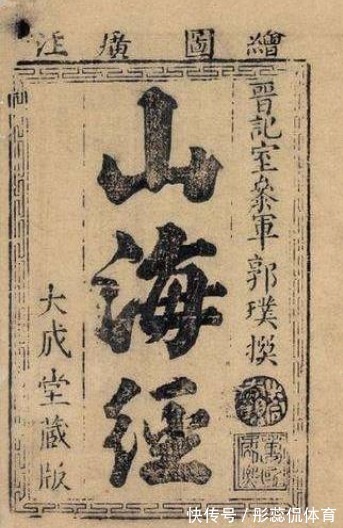 繪圖廣注
晉記室參軍郭璞撰
山海經
大成堂藏版
快传号 / 彤蕊侃体育